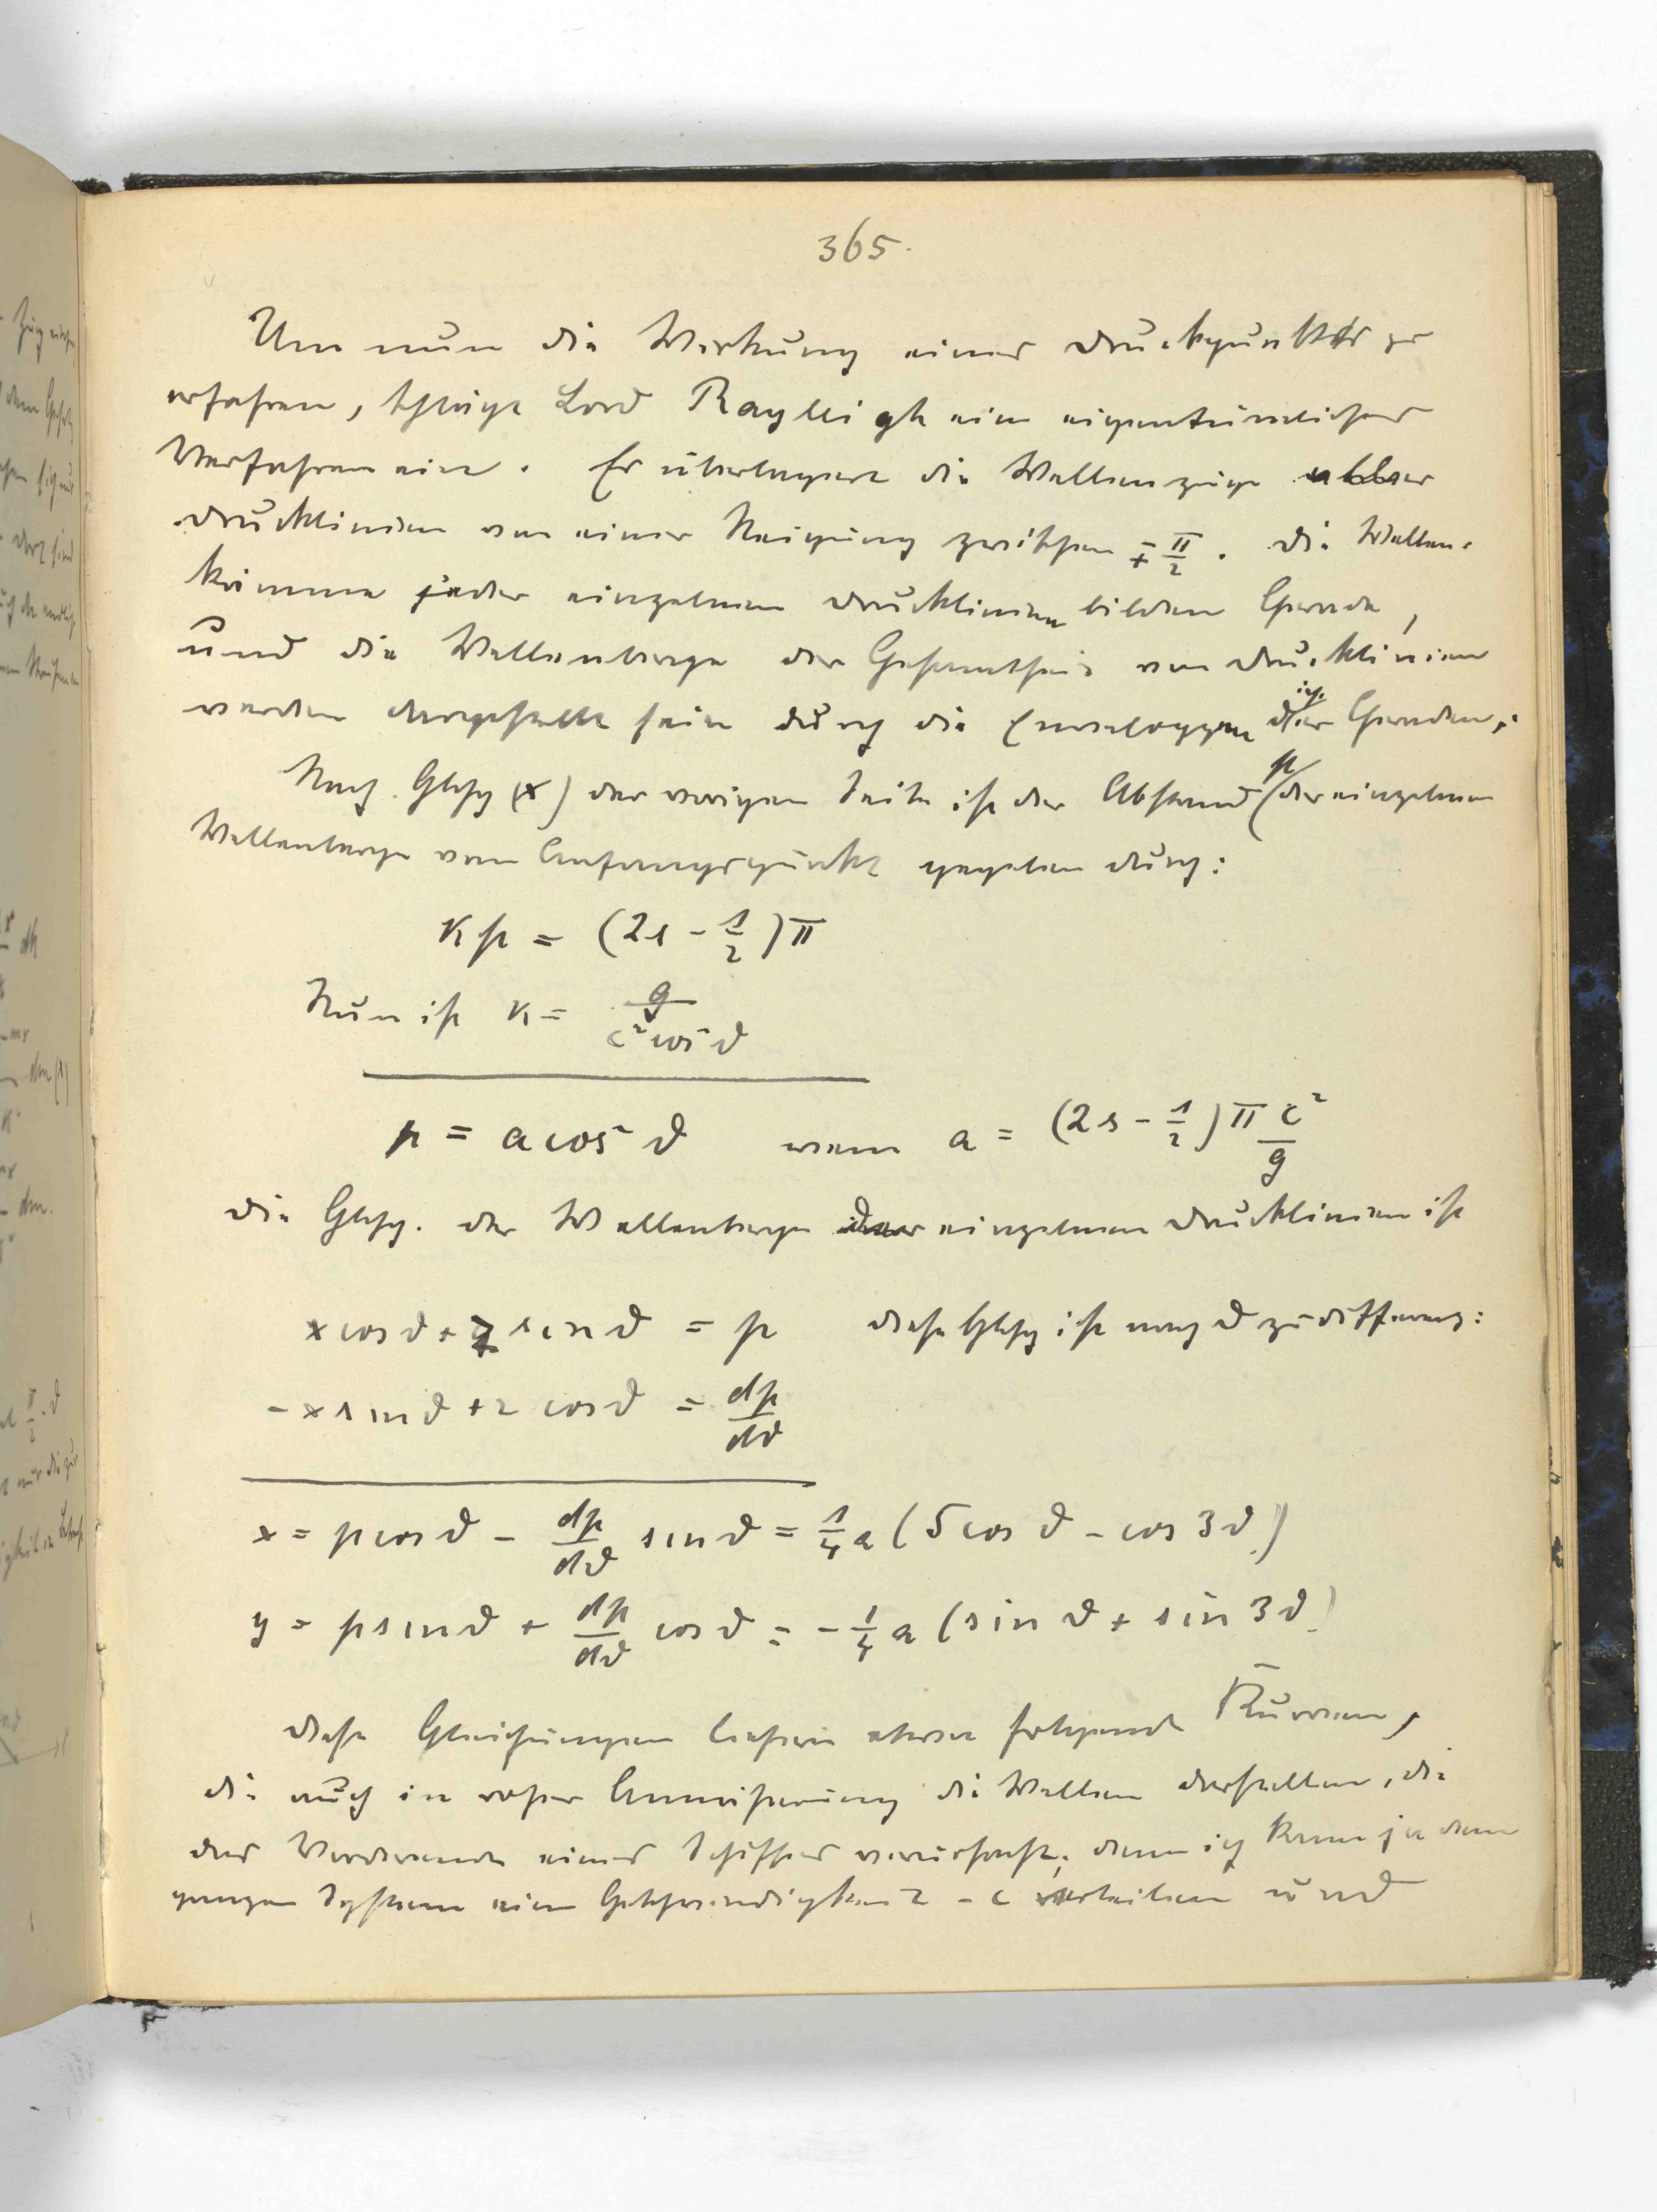 365.
Um nun die Wirkung eines Druckpunktes zu
erfahren, schlägt Lord Raylleigh ein eigentümliches
Verfahren ein. Er überlagert die Wellenzüge aller
Drucklinien von einer Neigung zwischen ∓ π/2. Die Wellen-
kämme jeder einzelnen Drucklinien bilden Gerade,
und die Wellenberge der Gesamtheit von Drucklinien
werden dargestellt sein durch die Enveloppen dieser Geraden,.
Nach Glchg (x) der vorigen Seite ist der Abstand p der einzelnen
Wellenberge vom Anfangspunkt gegeben durch:
κ p = (2s - 1/2) π
Nun ist κ = g / c² cos² ϑ
p = a cos² ϑ wenn a = (2s - 1/2) π c²/g
Die Glchg. der Wellenberge der einzelnen Drucklinien ist
x cos ϑ + z sin ϑ = p diese Glchg ist nach ϑ zu differenz:
- x sin ϑ + z cos ϑ = dp/dϑ
x = p cos ϑ - dp/dϑ sin ϑ = 1/4 a (5 cos ϑ - cos 3ϑ)
y = p sin ϑ + dp/dϑ cos ϑ = - 1/4 a (sin ϑ + sin 3ϑ)
Diese Gleichungen liefern etwa folgende Kurven,
die auch in roher Annäherung die Wellen darstellen, die
das Vorderende eines Schiffes verursacht; denn ich kann ja dem
ganzen System eine Geschwindigkeit - c erteilen und